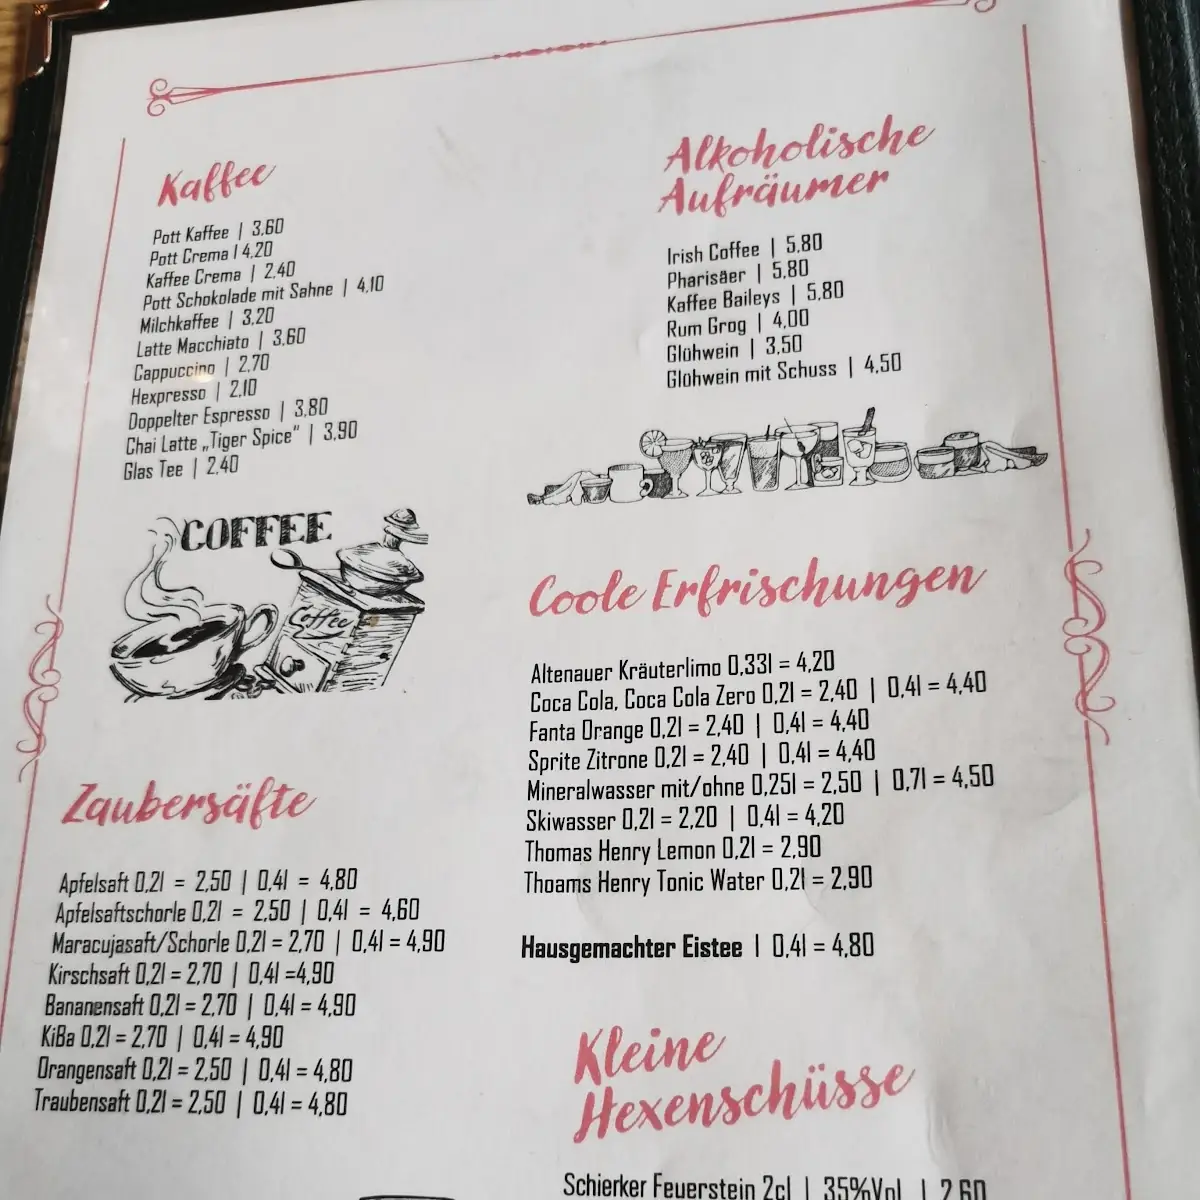 Kaffee
Pott Kaffee | 3,60
Pott Crema | 4,20
Kaffee Crema | 2,40
Pott Schokolade mit Sahne | 4,10
Milchkaffee | 3,20
Latte Macchiato | 3,60
Cappuccino | 2,70
Hexpresso | 2,10
Doppelter Espresso | 3,80
Chai Latte „Tiger Spice“ | 3,90
Glas Tee | 2,40
COFFEE
Coffee
Zaubersäfte
Apfelsaft 0,2l = 2,50 | 0,4l = 4,80
Apfelsaftschorle 0,2l = 2,50 | 0,4l = 4,60
Maracujasaft/Schorle 0,2l = 2,70 | 0,4l = 4,90
Kirschsaft 0,2l = 2,70 | 0,4l =4,90
Bananensaft 0,2l = 2,70 | 0,4l = 4,90
KiBa 0,2l = 2,70 | 0,4l = 4,90
Orangensaft 0,2l = 2,50 | 0,4l = 4,80
Traubensaft 0,2l = 2,50 | 0,4l = 4,80
Alkoholische
Aufräumer
Irish Coffee | 5,80
Pharisäer | 5,80
Kaffee Baileys | 5,80
Rum Grog | 4,00
Glühwein | 3,50
Glühwein mit Schuss | 4,50
Coole Erfrischungen
Altenauer Kräuterlimo 0,33l = 4,20
Coca Cola, Coca Cola Zero 0,2l = 2,40 | 0,4l = 4,40
Fanta Orange 0,2l = 2,40 | 0,4l = 4,40
Sprite Zitrone 0,2l = 2,40 | 0,4l = 4,40
Mineralwasser mit/ohne 0,25l = 2,50 | 0,7l = 4,50
Skiwasser 0,2l = 2,20 | 0,4l = 4,20
Thomas Henry Lemon 0,2l = 2,90
Thoams Henry Tonic Water 0,2l = 2,90
Hausgemachter Eistee | 0,4l = 4,80
Kleine
Hexenschüsse
Schierker Feuerstein 2cl | 35%Vol | 2,60